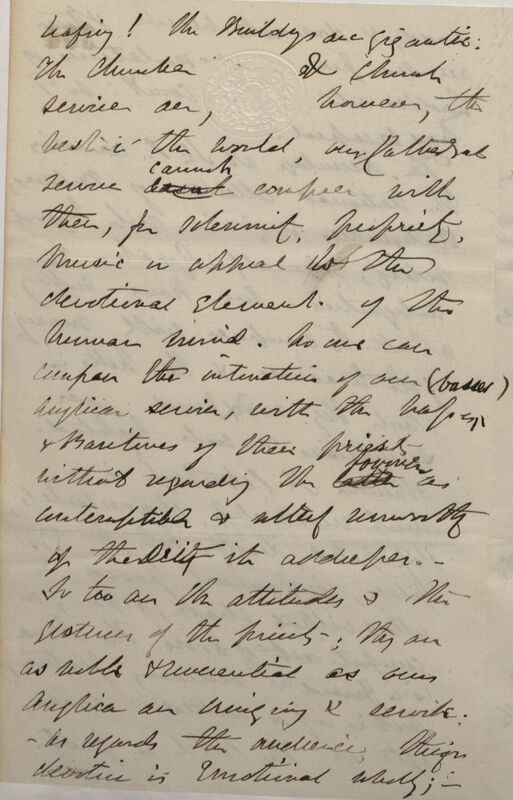 The Buildgs are gigantic:
The churches & Church
services are, however, the
best in the world, our Cathedral
service cannot compare with
them, for solemnity, propriety,
Music or appeal to the
devotional element of the
human mind. No one can
compare the intonation of our (basses)
Anglican service, with the basses
& Baritones of their priests
without regarding the former as
contemptible & utterly unworthy
of the Deity it addresses. —
So too are the attitudes & the
gestures of the priests; they are
as noble & reverential as our
Anglican are cringing & servile:
— as regards the audience, their
devotion is Emotional wholly; —